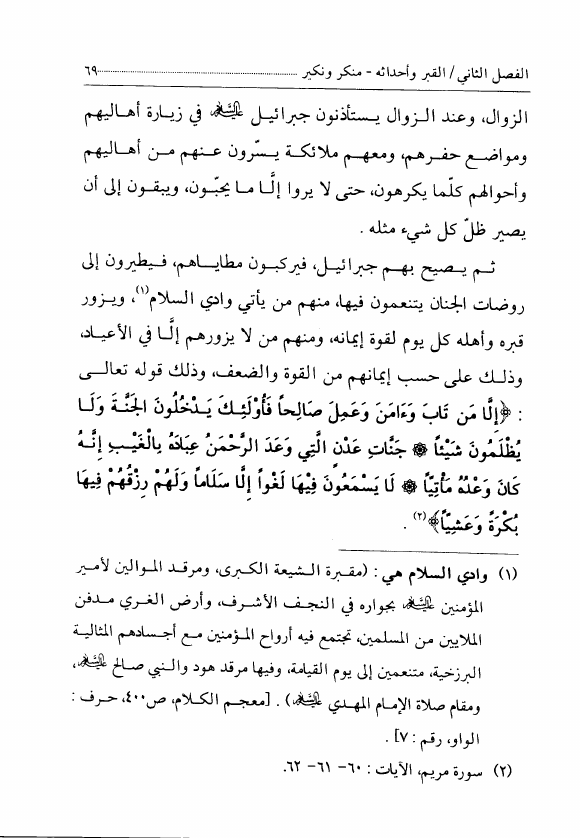 الفصل الثاني / القبر وأحداثه - منكر ونكير ........................................................ ٦٩
الزوال، وعند الزوال يستأذنون جبرائيل عليه السلام في زيارة أهاليهم
ومواضع حفرهم، ومعهم ملائكة يسّرون عنهم من أهاليهم
وأحوالهم كلّما يكرهون، حتى لا يروا إلَّا ما يحبّون، ويبقون إلى أن
يصير ظلّ كل شيء مثله .
ثم يصيح بهم جبرائيل، فيركبون مطاياهم، فيطيرون إلى
روضات الجنان يتنعمون فيها، منهم من يأتي وادي السلام(١)، ويزور
قبره وأهله كل يوم لقوة إيمانه، ومنهم من لا يزورهم إلَّا في الأعياد،
وذلك على حسب إيمانهم من القوة والضعف، وذلك قوله تعالى
: ﴿إِلَّا مَن تَابَ وَءَامَنَ وَعَمِلَ صَالِحاً فَأُوْلَئِكَ يَدْخُلُونَ الجَنَّةَ وَلَا
يُظْلَمُونَ شَيْئاً * جَنَّاتِ عَدْنٍ الَّتِي وَعَدَ الرَّحْمَنُ عِبَادَهُ بِالْغَيْبِ إِنَّهُ
كَانَ وَعْدُهُ مَأْتِيّاً * لَا يَسْمَعُونَ فِيهَا لَغْواً إِلَّا سَلَاماً وَلَهُمْ رِزْقُهُمْ فِيهَا
بُكْرَةً وَعَشِيّاً﴾(٢) .
(١) وادي السلام هي : (مقبرة الشيعة الكبرى، ومرقد الموالين لأمير
المؤمنين عليه السلام بجواره في النجف الأشرف، وأرض الغري مدفن
الملايين من المسلمين، تجتمع فيه أرواح المؤمنين مع أجسادهم المثالية
البرزخية، متنعمين إلى يوم القيامة، وفيها مرقد هود والنبي صالح عليه السلام،
ومقام صلاة الإمام المهدي عليه السلام) . [معجم الكلام، ص٤٠٠، حرف :
الواو، رقم : ٧] .
(٢) سورة مريم، الآيات : ٦٠- ٦١- ٦٢.